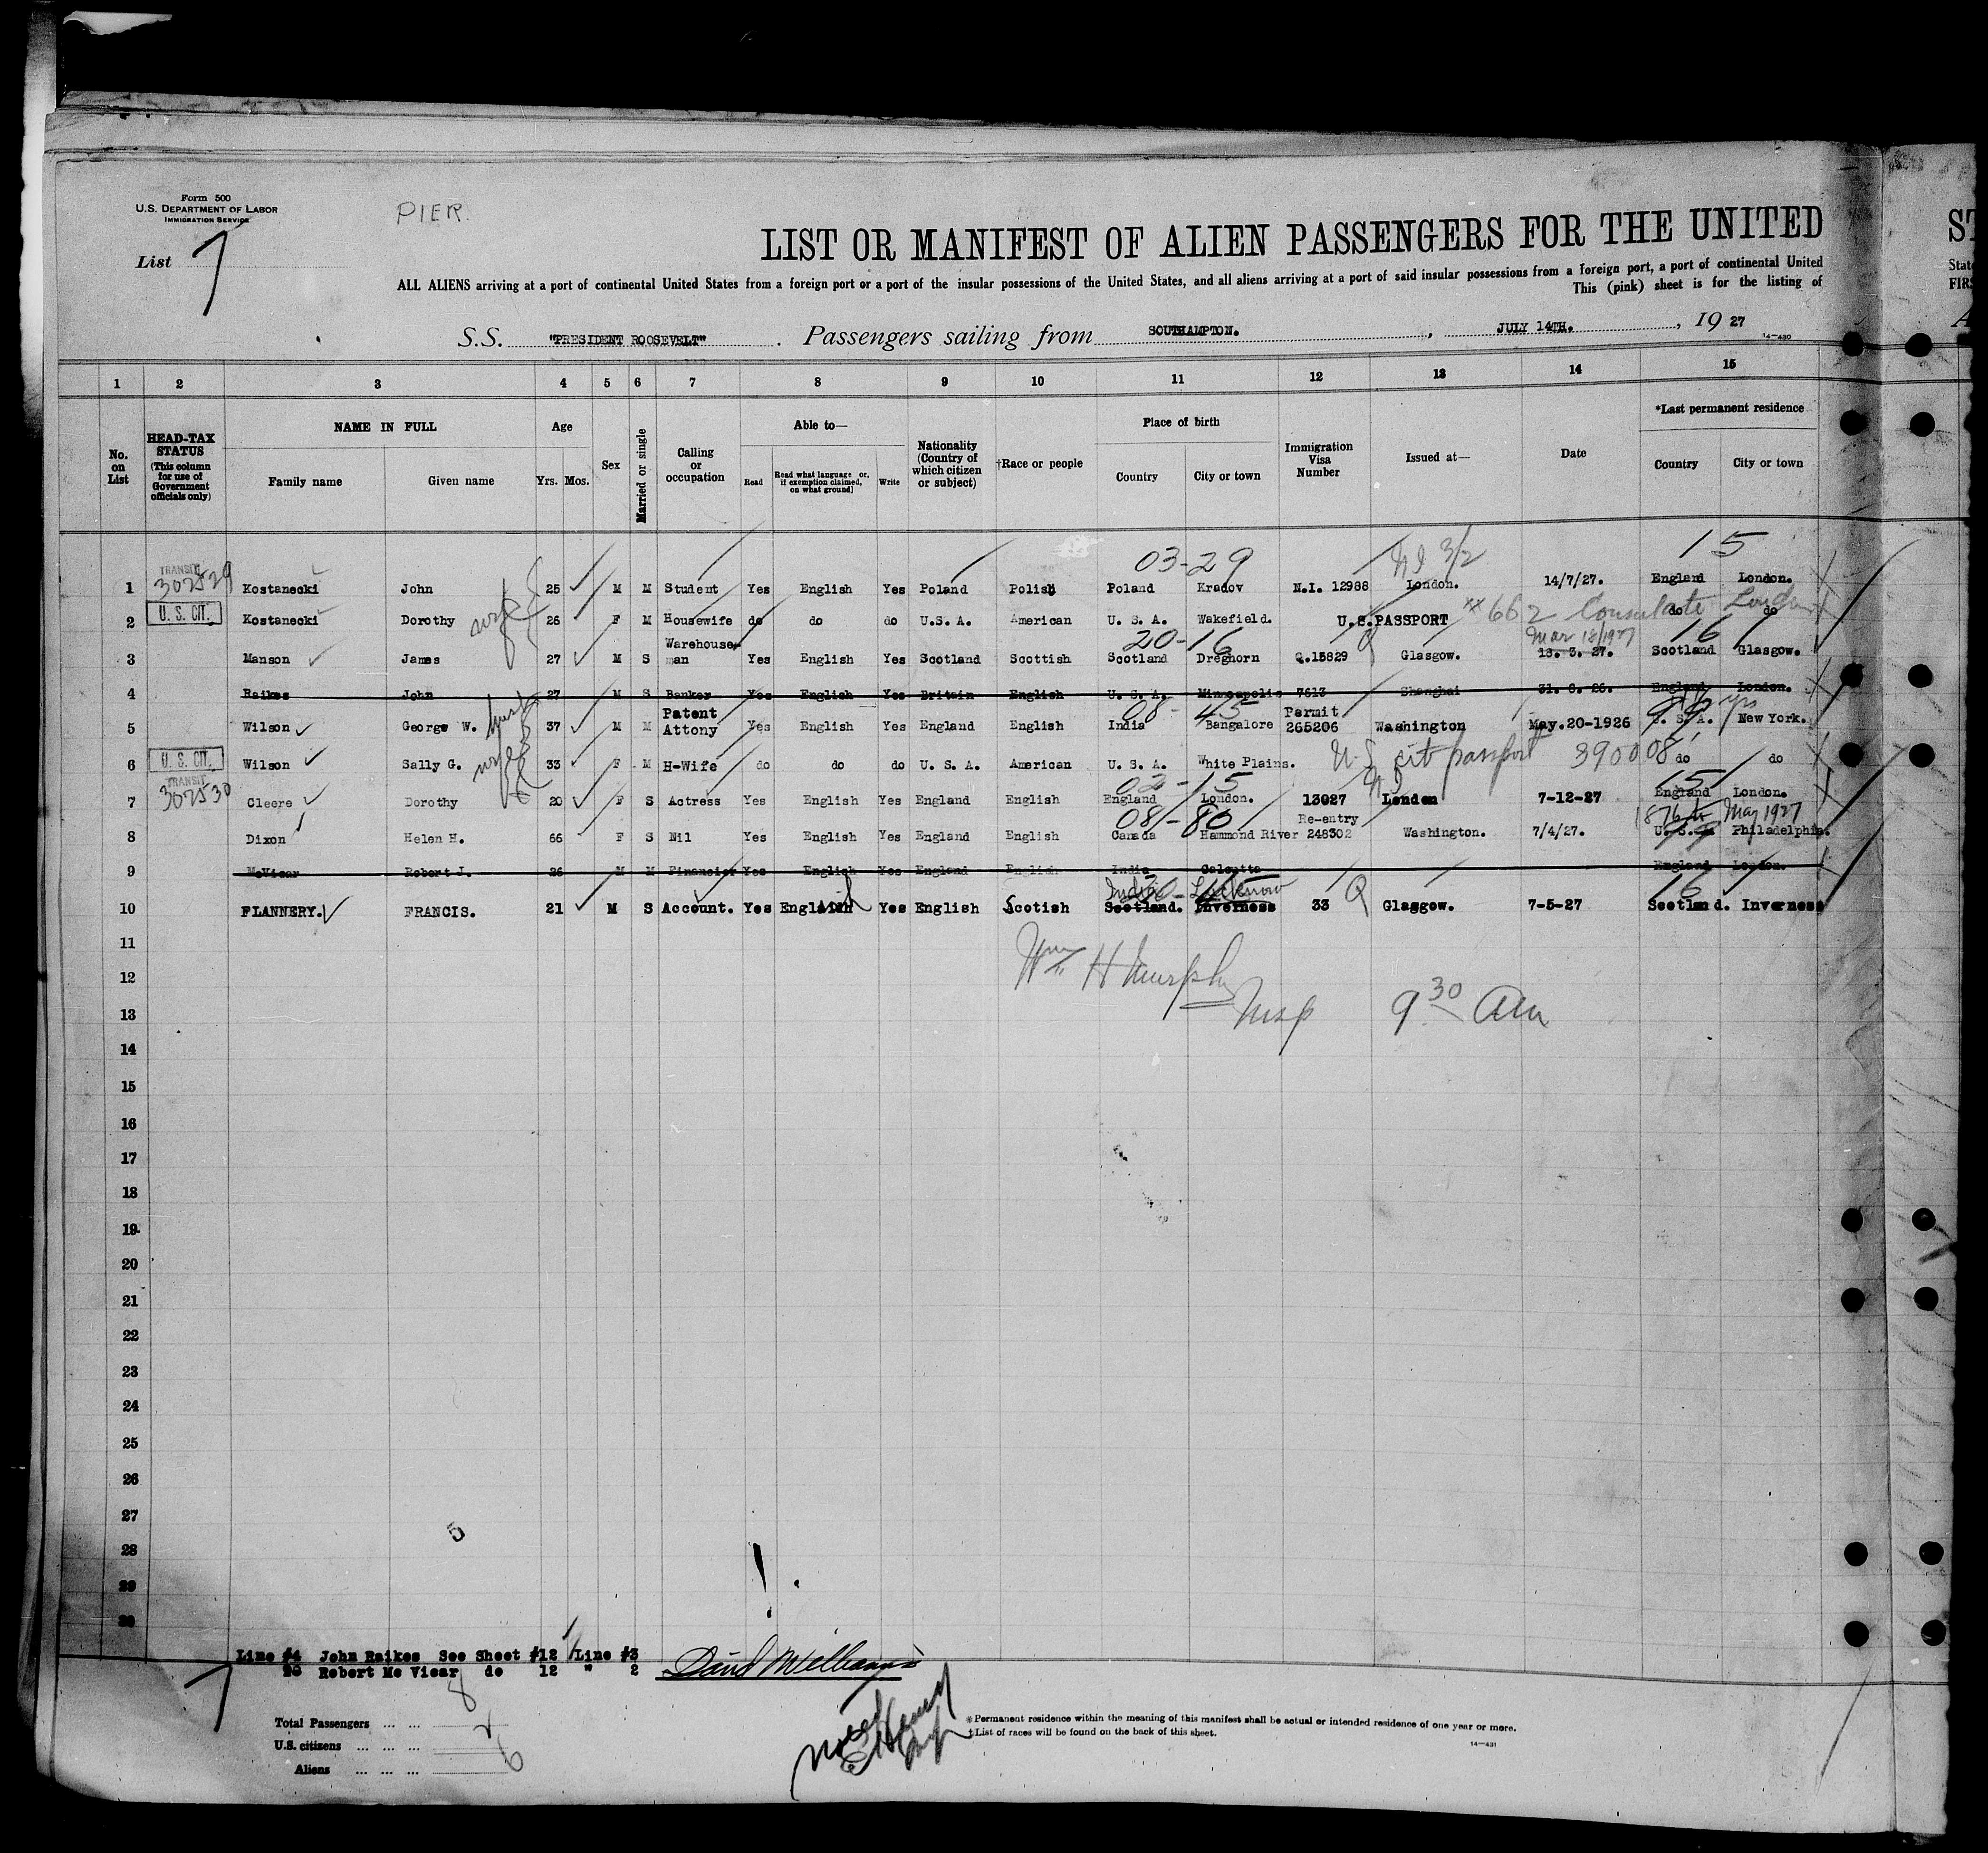 Form 500
U.S. DEPARTMENT OF LABOR
IMMIGRATION SERVICE
PIER.
List 7
LIST OR MANIFEST OF ALIEN PASSENGERS FOR THE UNITED
ALL ALIENS arriving at a port of continental United States from a foreign port or a port of the insular possessions of the United States, and all aliens arriving at a port of said insular possessions from a foreign port, a port of continental United
This (pink) sheet is for the listing of
S.S. "PRESIDENT ROOSEVELT" . Passengers sailing from SOUTHAMPTON. , JULY 14TH. , 19 27
14—430
1 2 3 4 5 6 7 8 9 10 11 12 13 14 15
No. on List
HEAD-TAX STATUS (This column for use of Government officials only)
NAME IN FULL
Family name Given name
Age
Yrs. Mos.
Sex
Married or single
Calling or occupation
Able to—
Read
Read what language or, if exemption claimed, on what ground]
Write
Nationality (Country of which citizen or subject)
†Race or people
Place of birth
Country City or town
Immigration Visa Number
Issued at—
Date
*Last permanent residence
Country City or town
03-29 15
TRANSIT 302529
1 Kostanecki John 25 M M Student Yes English Yes Poland Polish Poland Kradov N.I. 12988 London. 14/7/27. England London.
2 U. S. CIT. Kostanecki Dorothy wife 26 F M Housewife do do do U.S. A. American U. S. A. Wakefield. U.S.PASSPORT 662 Consulate London do do
20-16 Mar 18/1927 16
3 Manson James 27 M S Warehouse man Yes English Yes Scotland Scottish Scotland Dreghorn Q.15829 Q Glasgow. 18. 3. 27. Scotland Glasgow.
4 Raikes John 27 M S Banker Yes English Yes Britain English U. S. A. Minneapolis 7613 Shanghai 31. 8. 26. England London.
08-45
5 Wilson George W. husb 37 M M Patent Attony Yes English Yes England English India Bangalore Permit 265206 Washington May.20-1926 U. S. A. New York.
6 U. S. CIT. Wilson Sally G. wife 33 F M H-Wife do do do U. S. A. American U. S. A. White Plains. U.S cit passport 390008 do do
TRANSIT 302530
15
7 Cleere Dorothy 20 F S Actress Yes English Yes England English England London. 13027 London 7-12-27 England London.
08-80 1876 to May 1927
8 Dixon Helen H. 66 F S Nil Yes English Yes England English Canada Hammond River Re-entry 248302 Washington. 7/4/27. U. S. A. Philadelphia.
9 McVicar Robert J. 26 M M Financier Yes English Yes England English India Calcutta England London.
India Lucknow 16
10 FLANNERY. FRANCIS. 21 M S Account. Yes English Yes English Scotish Scotland. Inverness 33 Q Glasgow. 7-5-27 Scotland. Inverness
11
Wm H Murphy
12
Insp 9 30 am
13
14
15
16
17
18
19
20
21
22
23
24
25
26
27
5
28
29
30
Line #4 John Raikes See Sheet #12 /Line #3
Robert Mc Vicar do 12 " 2
7
Total Passengers ... ... 8
U.S. citizens ... ... ... 2
Aliens ... ... ... 6
* Permanent residence within the meaning of this manifest shall be actual or intended residence of one year or more.
†List of races will be found on the back of this sheet.
14—431